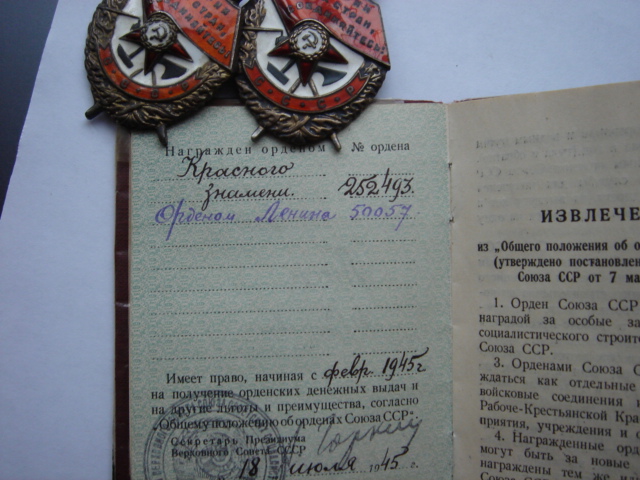 Награжден орденом № ордена
Красного
знамени. 252493.
Орденом Ленина 50057.
Имеет право, начиная с февр. 1945г
на получение орденских денежных выдач и
на другие льготы и преимущества, согласно
„Общему положению об орденах Союза ССР“.
Секретарь Президиума
Верховного Совета СССР
18 июля 1945 г.
ИЗВЛЕЧЕ
из „Общего положения об о
(утверждено постановлен
Союза ССР от 7 ма
1. Орден Союза ССР
наградой за особые за
социалистического строите
Союза ССР.
3. Орденами Союза С
ждаться как отдельные
войсковые соединения и
Рабоче-Крестьянской Кра
приятия, учреждения и о
4. Награжденные орд
могут быть за новые
награждены тем же и